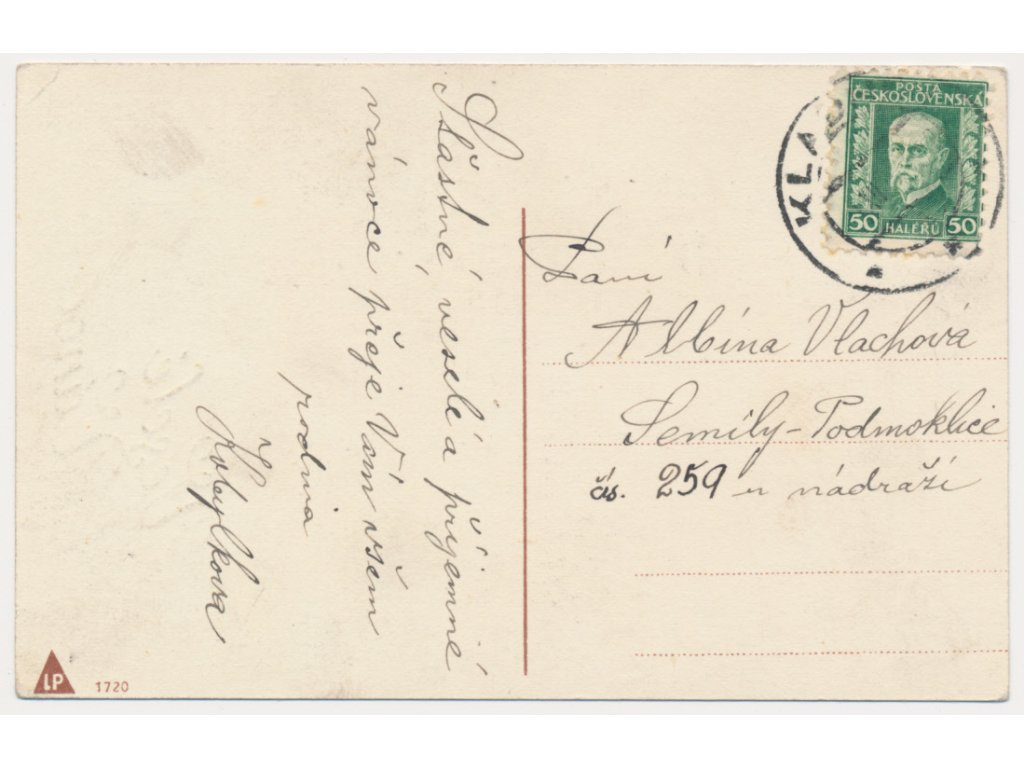 Šťastné veselé a příjemné
vánoce přeje Vám všem
rodina
Kobylkova
POŠTA
ČESKOSLOVENSKÁ
50 HALÉŘŮ 50
Paní
Albína Vlachová
Semily-Podmoklice
čís. 259 u nádraží
LP 1720